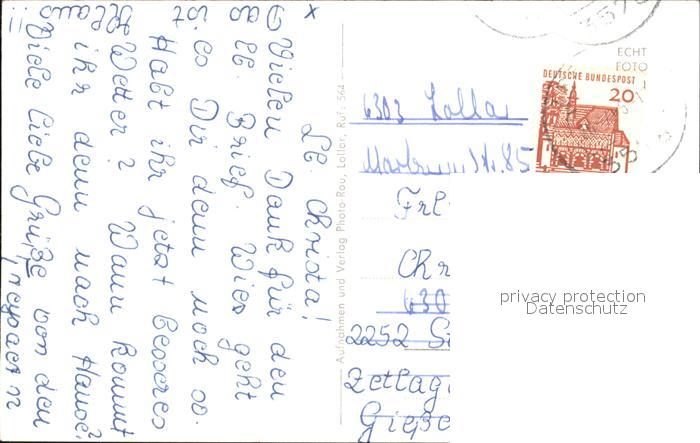 Lb. Christa!
Vielen Dank für den
lb. Brief. Wies geht
es Dir denn noch so.
Habt ihr jetzt besseres
Wetter? Wann kommt
ihr denn nach Hause?
Viele liebe Grüße von den
x
Das
ist
Klaus
!!!
Aufnahmen und Verlag Photo-Rau, Lollar, Ruf: 564
ECHT
FOTO
DEUTSCHE BUNDESPOST
20
6303 Lollar
Str. 85
Frl
Chr
630
2252 S
Zeltlag
Gieße
privacy protection
Datenschutz